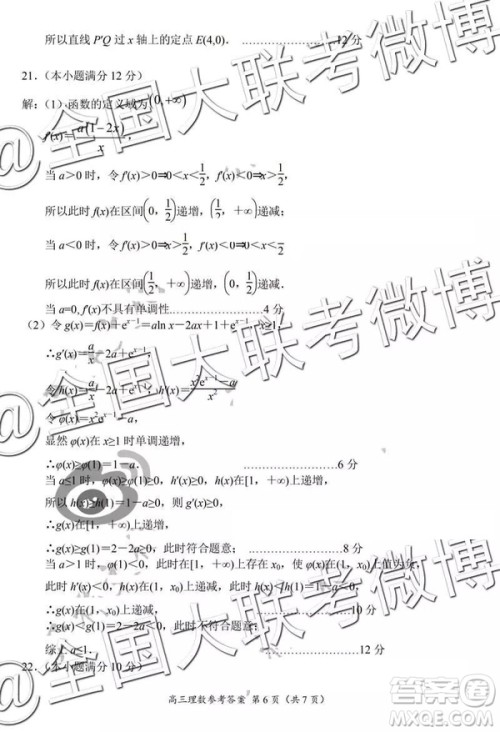 所以直线 P′Q 过 x 轴上的定点 E(4,0). ……………12 分
21.（本小题满分 12 分）
解：（1）函数的定义域为(0,+∞)
f′(x)=a(1−2x)/x，
当 a＞0 时，令 f′(x)＞0⇒0＜x＜1/2，f′(x)＜0⇒x＞1/2，
所以此时 f(x)在区间(0,1/2)递增，(1/2,+∞)递减；
当 a＜0 时，令 f′(x)＞0⇒x＞1/2，f′(x)＜0⇒0＜x＜1/2，
所以此时 f(x)在区间(1/2,+∞)递增，(0,1/2)递减.
当 a=0, f′(x)不具有单调性……………4 分
（2）令 g(x)=f(x)+eˣ⁻¹=aln x−2ax+1+eˣ⁻¹，x≥1，
∴g′(x)=a/x−2a+eˣ⁻¹，
令 h(x)=a/x−2a+eˣ⁻¹，h′(x)=(x²eˣ⁻¹−a)/x²
令 φ(x)=x²eˣ⁻¹−a，
显然 φ(x)在 x≥1 时单调递增，
∴φ(x)≥φ(1)=1−a. ……………6 分
当 a≤1 时，φ(x)≥φ(1)≥0，h′(x)≥0，h(x)在[1，+∞)上递增，
所以 h(x)≥h(1)=1−a≥0，则 g′(x)≥0，
∴g(x)在[1，+∞)上递增，
∴g(x)≥g(1)=2−2a≥0，此时符合题意； ……………8 分
当 a＞1 时，φ(1)＜0，此时在[1，+∞)上存在 x₀，使 φ(x)在(1，x₀)上值为负，
此时 h′(x)<0，h(x)在(1，x₀)上递减，此时 h(x)<h(1)=1−a<0，
∴g(x)在(1，x₀)上递减， ……………10 分
∴g(x)＜g(1)=2−2a＜0，此时不符合题意；
综上 a≤1. ……………12 分
22.（本小题满分 10 分）
高三理数参考答案 第 6 页（共 7 页）
@全国大联考微博
@全国大联考微博
@全国大联考微博
答案圈
MXQE.COM